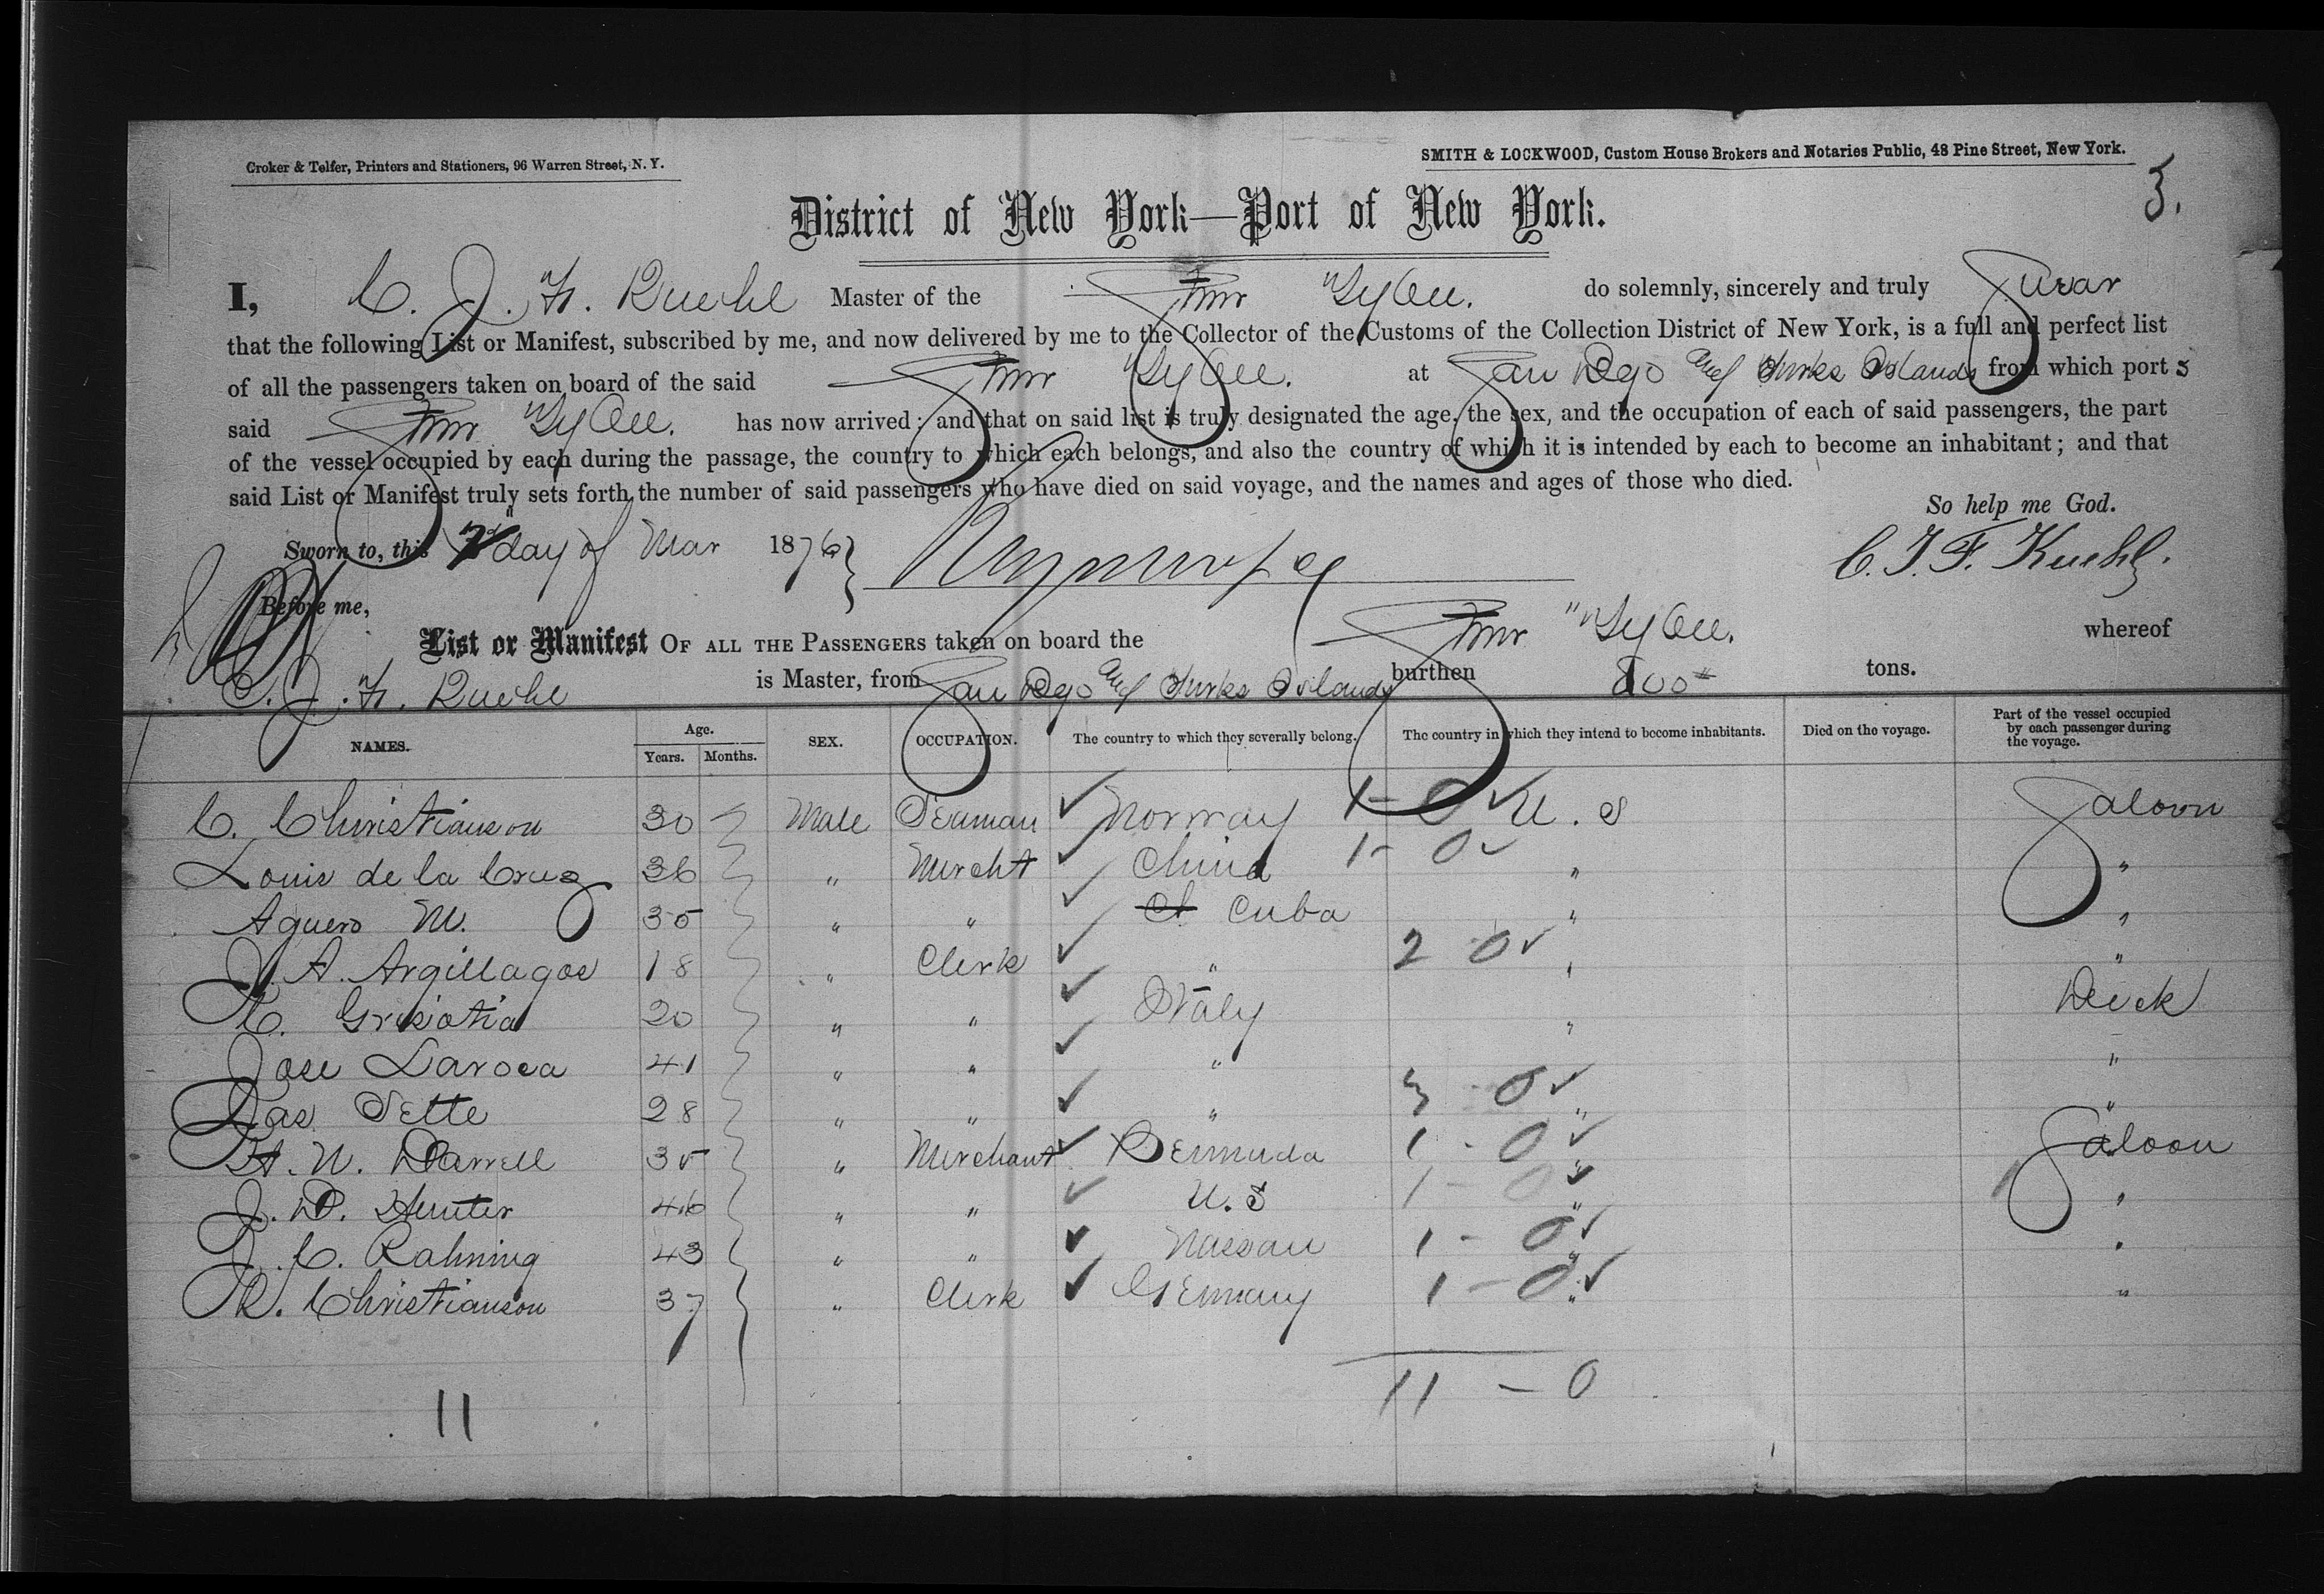 Croker & Telfer, Printers and Stationers, 96 Warren Street, N. Y.
SMITH & LOCKWOOD, Custom House Brokers and Notaries Public, 48 Pine Street, New York.
5.
District of New York—Port of New York.
I, C. J. F. Kuehl Master of the Stmr "Tybee. do solemnly, sincerely and truly Swear
that the following List or Manifest, subscribed by me, and now delivered by me to the Collector of the Customs of the Collection District of New York, is a full and perfect list
of all the passengers taken on board of the said Stmr "Tybee. at San Dgo and Turks Islands from which port s
said Stmr "Tybee. has now arrived: and that on said list is truly designated the age, the sex, and the occupation of each of said passengers, the part
of the vessel occupied by each during the passage, the country to which each belongs, and also the country of which it is intended by each to become an inhabitant; and that
said List or Manifest truly sets forth the number of said passengers who have died on said voyage, and the names and ages of those who died.
So help me God.
Sworn to, this day of Mar 1876 C. J. F. Kuehl.
Before me,
List or Manifest OF ALL THE PASSENGERS taken on board the Stmr "Tybee. whereof
C. J. F. Kuehl is Master, from San Dgo and Turks Islands burthen 800 tons.
NAMES. Age. Years. Months. SEX. OCCUPATION. The country to which they severally belong. The country in which they intend to become inhabitants. Died on the voyage. Part of the vessel occupied by each passenger during the voyage.
C. Christianson 30 Male Seaman ✓ Norway 1 - 0 ✓ U. S Saloon
Louis de la Cruz 36 " Mercht ✓ China 1 - 0 ✓ " "
Aguero M. 35 " " ✓ Ch Cuba " "
J. A. Argillagos 18 " Clerk ✓ " 2 0 ✓ " "
C. 20 " " ✓ Italy " Deck
Jose Laroca 41 " " ✓ " "
Jas Sette 28 " " ✓ " 3 - 0 ✓ " "
H. W. Darrell 35 " Merchant ✓ Bermuda 1 - 0 ✓ " Saloon
J. D. Hunter 46 " " ✓ U. S 1 - 0 ✓ " "
J. C. Rahming 43 " " ✓ Nassau 1 - 0 ✓ " "
R. Christianson 37 " Clerk ✓ Germany 1 - 0 ✓ " "
11 - 0
11